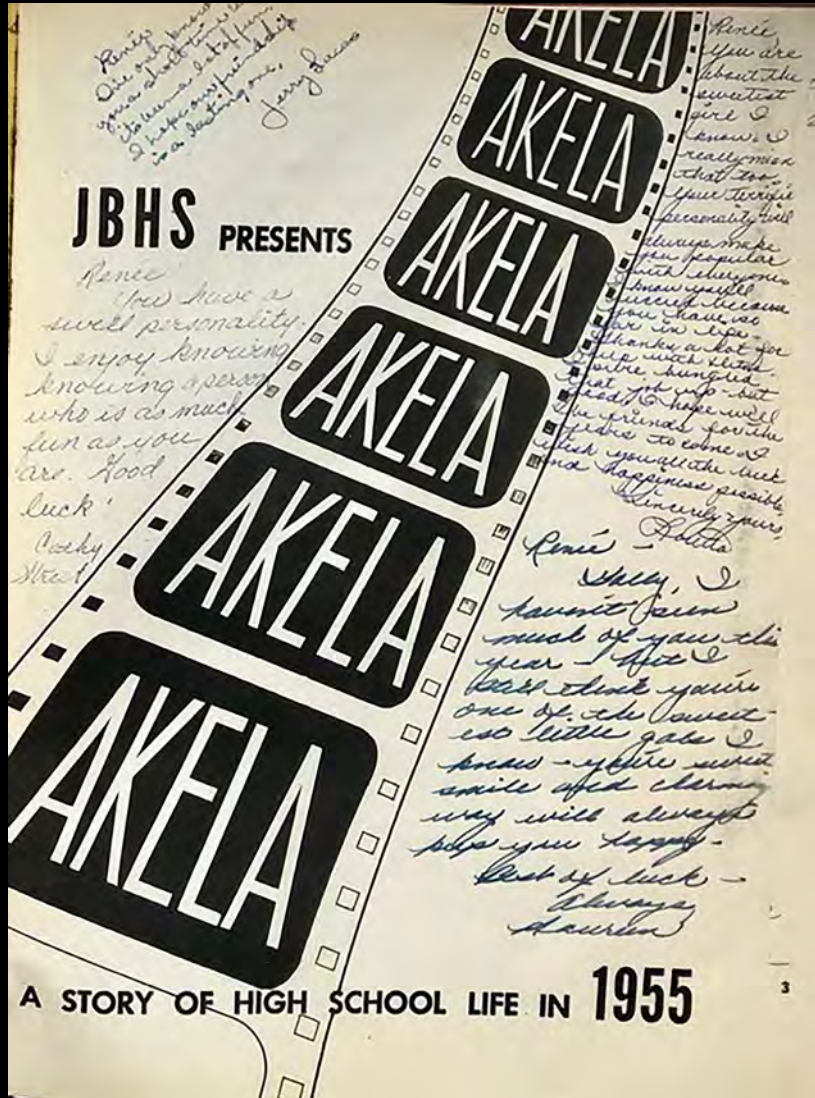 Renée
I've only known
you a short time but
its been a lot of fun.
I hope our friendship
is a lasting one.
Jerry Lucas
JBHS PRESENTS
Renée
You have a
swell personality.
I enjoy knowing
knowing a person
who is as much
fun as you
are. Good
luck!
Cathy
Street
AKELA
AKELA
AKELA
AKELA
AKELA
AKELA
Renée,
You are
about the
sweetest
girl I
know. I
really mean
that too.
Your terrific
personality will
always make
you popular
with everyone.
know you'll
succeed because
you have so
far in life.
Thanks a lot for
up with
but
good. I hope we'll
be friends for the
years to come. I
wish you all the luck
and happiness possible
Sincerely yours,
Renée -
Golly, I
haven't seen
much of you this
year - but I
still think you're
one of the sweet-
est little gals I
know - you're sweet
smile and charming
way will always
keep you happy -
Best of luck -
Always
A STORY OF HIGH SCHOOL LIFE IN 1955
3